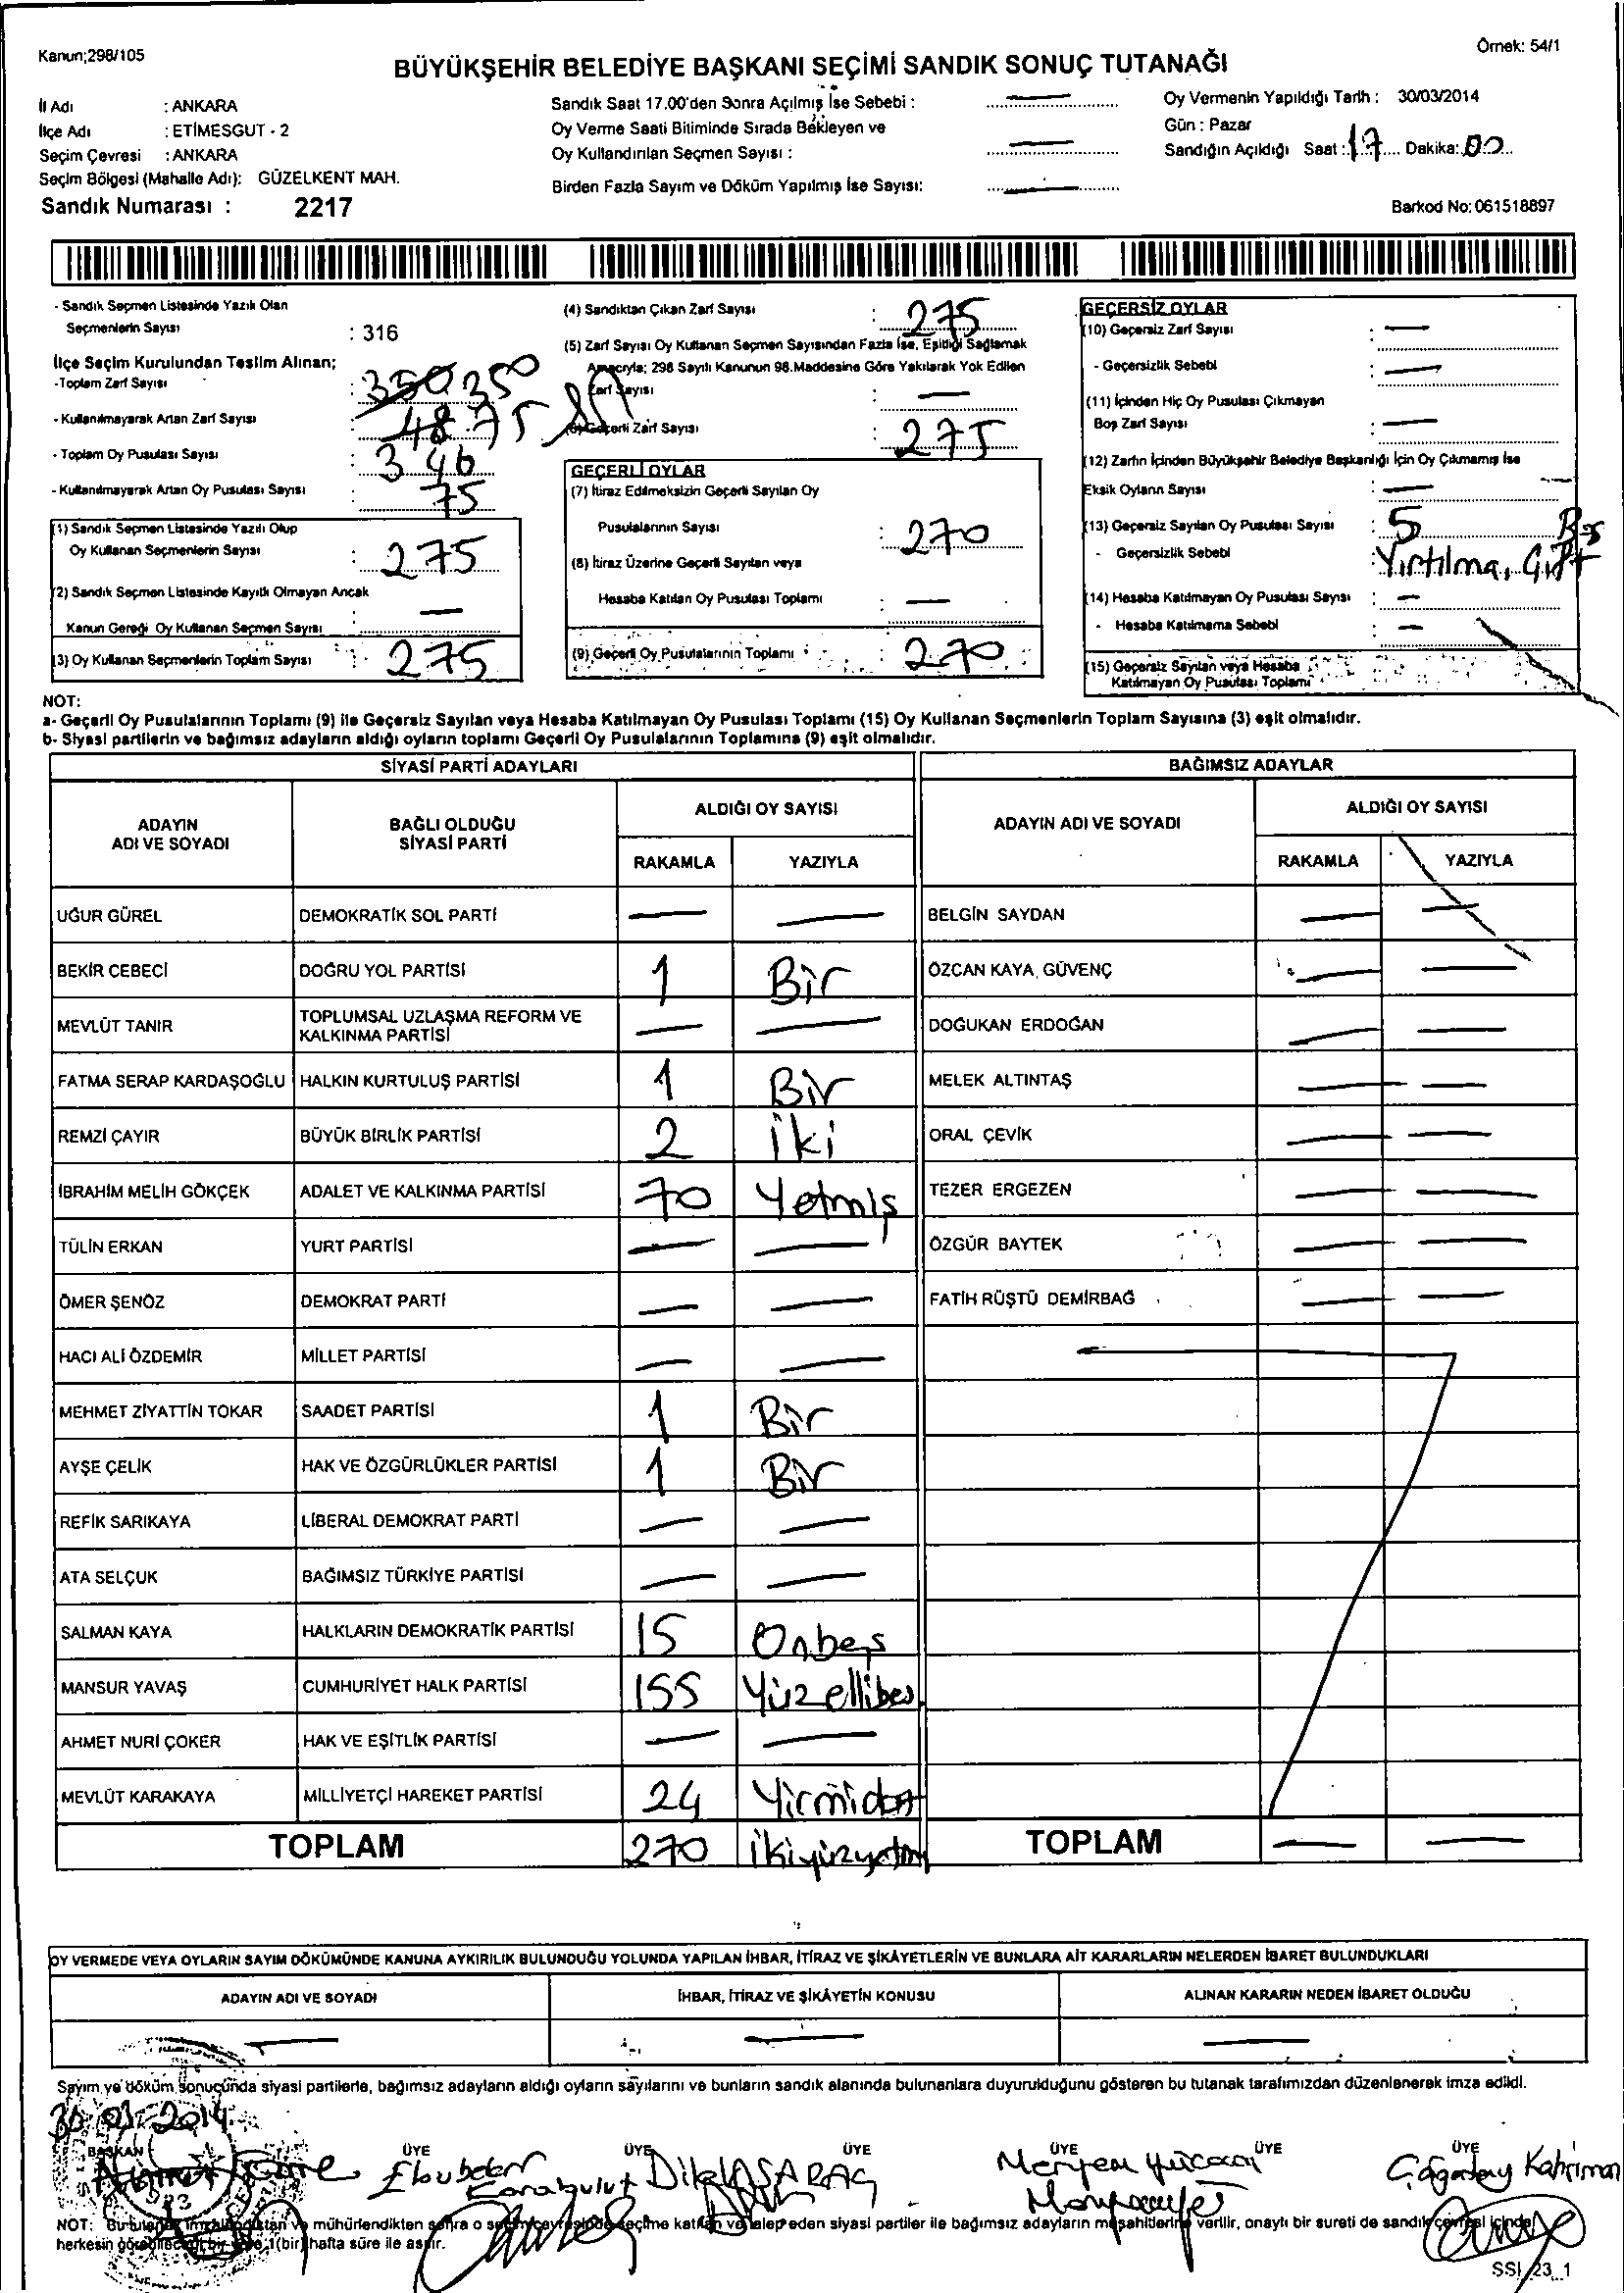 Kanun;298/105
Örnek: 54/1
BÜYÜKŞEHİR BELEDİYE BAŞKANI SEÇİMİ SANDIK SONUÇ TUTANAĞI
İl Adı : ANKARA
İlçe Adı : ETİMESGUT - 2
Seçim Çevresi : ANKARA
Seçim Bölgesi (Mahalle Adı): GÜZELKENT MAH.
Sandık Numarası : 2217
Sandık Saat 17.00'den Sonra Açılmış İse Sebebi :
Oy Verme Saati Bitiminde Sırada Bekleyen ve
Oy Kullandırılan Seçmen Sayısı :
Birden Fazla Sayım ve Döküm Yapılmış İse Sayısı:
Oy Vermenin Yapıldığı Tarih : 30/03/2014
Gün : Pazar
Sandığın Açıldığı Saat : 17 Dakika: 00
Barkod No: 061518897
- Sandık Seçmen Listesinde Yazılı Olan
Seçmenlerin Sayısı : 316
İlçe Seçim Kurulundan Teslim Alınan;
-Toplam Zarf Sayısı : 350 350
- Kullanılmayarak Artan Zarf Sayısı : 48 75
- Toplam Oy Pusulası Sayısı : 346
- Kullanılmayarak Artan Oy Pusulası Sayısı : 75
(1) Sandık Seçmen Listesinde Yazılı Olup
Oy Kullanan Seçmenlerin Sayısı : 275
(2) Sandık Seçmen Listesinde Kayıtlı Olmayan Ancak
Kanun Gereği Oy Kullanan Seçmen Sayısı : —
(3) Oy Kullanan Seçmenlerin Toplam Sayısı : 275
(4) Sandıktan Çıkan Zarf Sayısı : 275
(5) Zarf Sayısı Oy Kullanan Seçmen Sayısından Fazla İse, Eşitliği Sağlamak
Amacıyla; 298 Sayılı Kanunun 98.Maddesine Göre Yakılarak Yok Edilen
Zarf Sayısı : —
(6) Geçerli Zarf Sayısı : 275
GEÇERLİ OYLAR
(7) İtiraz Edilmeksizin Geçerli Sayılan Oy
Pusulalarının Sayısı : 270
(8) İtiraz Üzerine Geçerli Sayılan veya
Hesaba Katılan Oy Pusulası Toplamı : —
(9) Geçerli Oy Pusulalarının Toplamı : 270
GEÇERSİZ OYLAR
(10) Geçersiz Zarf Sayısı : —
- Geçersizlik Sebebi : —
(11) İçinden Hiç Oy Pusulası Çıkmayan
Boş Zarf Sayısı : —
(12) Zarfın İçinden Büyükşehir Belediye Başkanlığı İçin Oy Çıkmamış İse
Eksik Oyların Sayısı : —
(13) Geçersiz Sayılan Oy Pusulası Sayısı : 5
- Geçersizlik Sebebi : Yırtılma, Çift
(14) Hesaba Katılmayan Oy Pusulası Sayısı : —
- Hesaba Katılmama Sebebi : —
(15) Geçersiz Sayılan veya Hesaba
Katılmayan Oy Pusulası Toplamı
NOT:
a- Geçerli Oy Pusulalarının Toplamı (9) ile Geçersiz Sayılan veya Hesaba Katılmayan Oy Pusulası Toplamı (15) Oy Kullanan Seçmenlerin Toplam Sayısına (3) eşit olmalıdır.
b- Siyasi partilerin ve bağımsız adayların aldığı oyların toplamı Geçerli Oy Pusulalarının Toplamına (9) eşit olmalıdır.
SİYASİ PARTİ ADAYLARI
ADAYIN ADI VE SOYADI
BAĞLI OLDUĞU SİYASİ PARTİ
ALDIĞI OY SAYISI
RAKAMLA YAZIYLA
UĞUR GÜREL DEMOKRATİK SOL PARTİ — —
BEKİR CEBECİ DOĞRU YOL PARTİSİ 1 Bir
MEVLÜT TANIR TOPLUMSAL UZLAŞMA REFORM VE KALKINMA PARTİSİ — —
FATMA SERAP KARDAŞOĞLU HALKIN KURTULUŞ PARTİSİ 1 Bir
REMZİ ÇAYIR BÜYÜK BİRLİK PARTİSİ 2 İki
İBRAHİM MELİH GÖKÇEK ADALET VE KALKINMA PARTİSİ 70 Yetmiş
TÜLİN ERKAN YURT PARTİSİ — —
ÖMER ŞENÖZ DEMOKRAT PARTİ — —
HACI ALİ ÖZDEMİR MİLLET PARTİSİ — —
MEHMET ZİYATTİN TOKAR SAADET PARTİSİ 1 Bir
AYŞE ÇELİK HAK VE ÖZGÜRLÜKLER PARTİSİ 1 Bir
REFİK SARIKAYA LİBERAL DEMOKRAT PARTİ — —
ATA SELÇUK BAĞIMSIZ TÜRKİYE PARTİSİ — —
SALMAN KAYA HALKLARIN DEMOKRATİK PARTİSİ 15 Onbeş
MANSUR YAVAŞ CUMHURİYET HALK PARTİSİ 155 Yüzellibeş
AHMET NURİ ÇOKER HAK VE EŞİTLİK PARTİSİ — —
MEVLÜT KARAKAYA MİLLİYETÇİ HAREKET PARTİSİ 24 Yirmidört
TOPLAM 270 İkiyüzyetm
BAĞIMSIZ ADAYLAR
ADAYIN ADI VE SOYADI
ALDIĞI OY SAYISI
RAKAMLA YAZIYLA
BELGİN SAYDAN — —
ÖZCAN KAYA GÜVENÇ — —
DOĞUKAN ERDOĞAN — —
MELEK ALTINTAŞ — —
ORAL ÇEVİK — —
TEZER ERGEZEN — —
ÖZGÜR BAYTEK — —
FATİH RÜŞTÜ DEMİRBAĞ — —
TOPLAM — —
OY VERMEDE VEYA OYLARIN SAYIM DÖKÜMÜNDE KANUNA AYKIRILIK BULUNDUĞU YOLUNDA YAPILAN İHBAR, İTİRAZ VE ŞİKÂYETLERİN VE BUNLARA AİT KARARLARIN NELERDEN İBARET BULUNDUKLARI
ADAYIN ADI VE SOYADI İHBAR, İTİRAZ VE ŞİKÂYETİN KONUSU ALINAN KARARIN NEDEN İBARET OLDUĞU
— — —
Sayım ve döküm sonucunda siyasi partilerle, bağımsız adayların aldığı oyların sayılarını ve bunların sandık alanında bulunanlara duyurulduğunu gösteren bu tutanak tarafımızdan düzenlenerek imza edildi.
30.03.2014
BAŞKAN ÜYE ÜYE ÜYE ÜYE ÜYE ÜYE
Karabulut
Meryem
NOT: Bu tutanak imzalandıktan ve mühürlendikten sonra o seçim çevresinde seçime katılan ve talep eden siyasi partiler ile bağımsız adayların müşahitlerine verilir, onaylı bir sureti de sandık çevresi içinde
herkesin görebileceği bir yere 1(bir) hafta süre ile asılır.
SSI_23_1